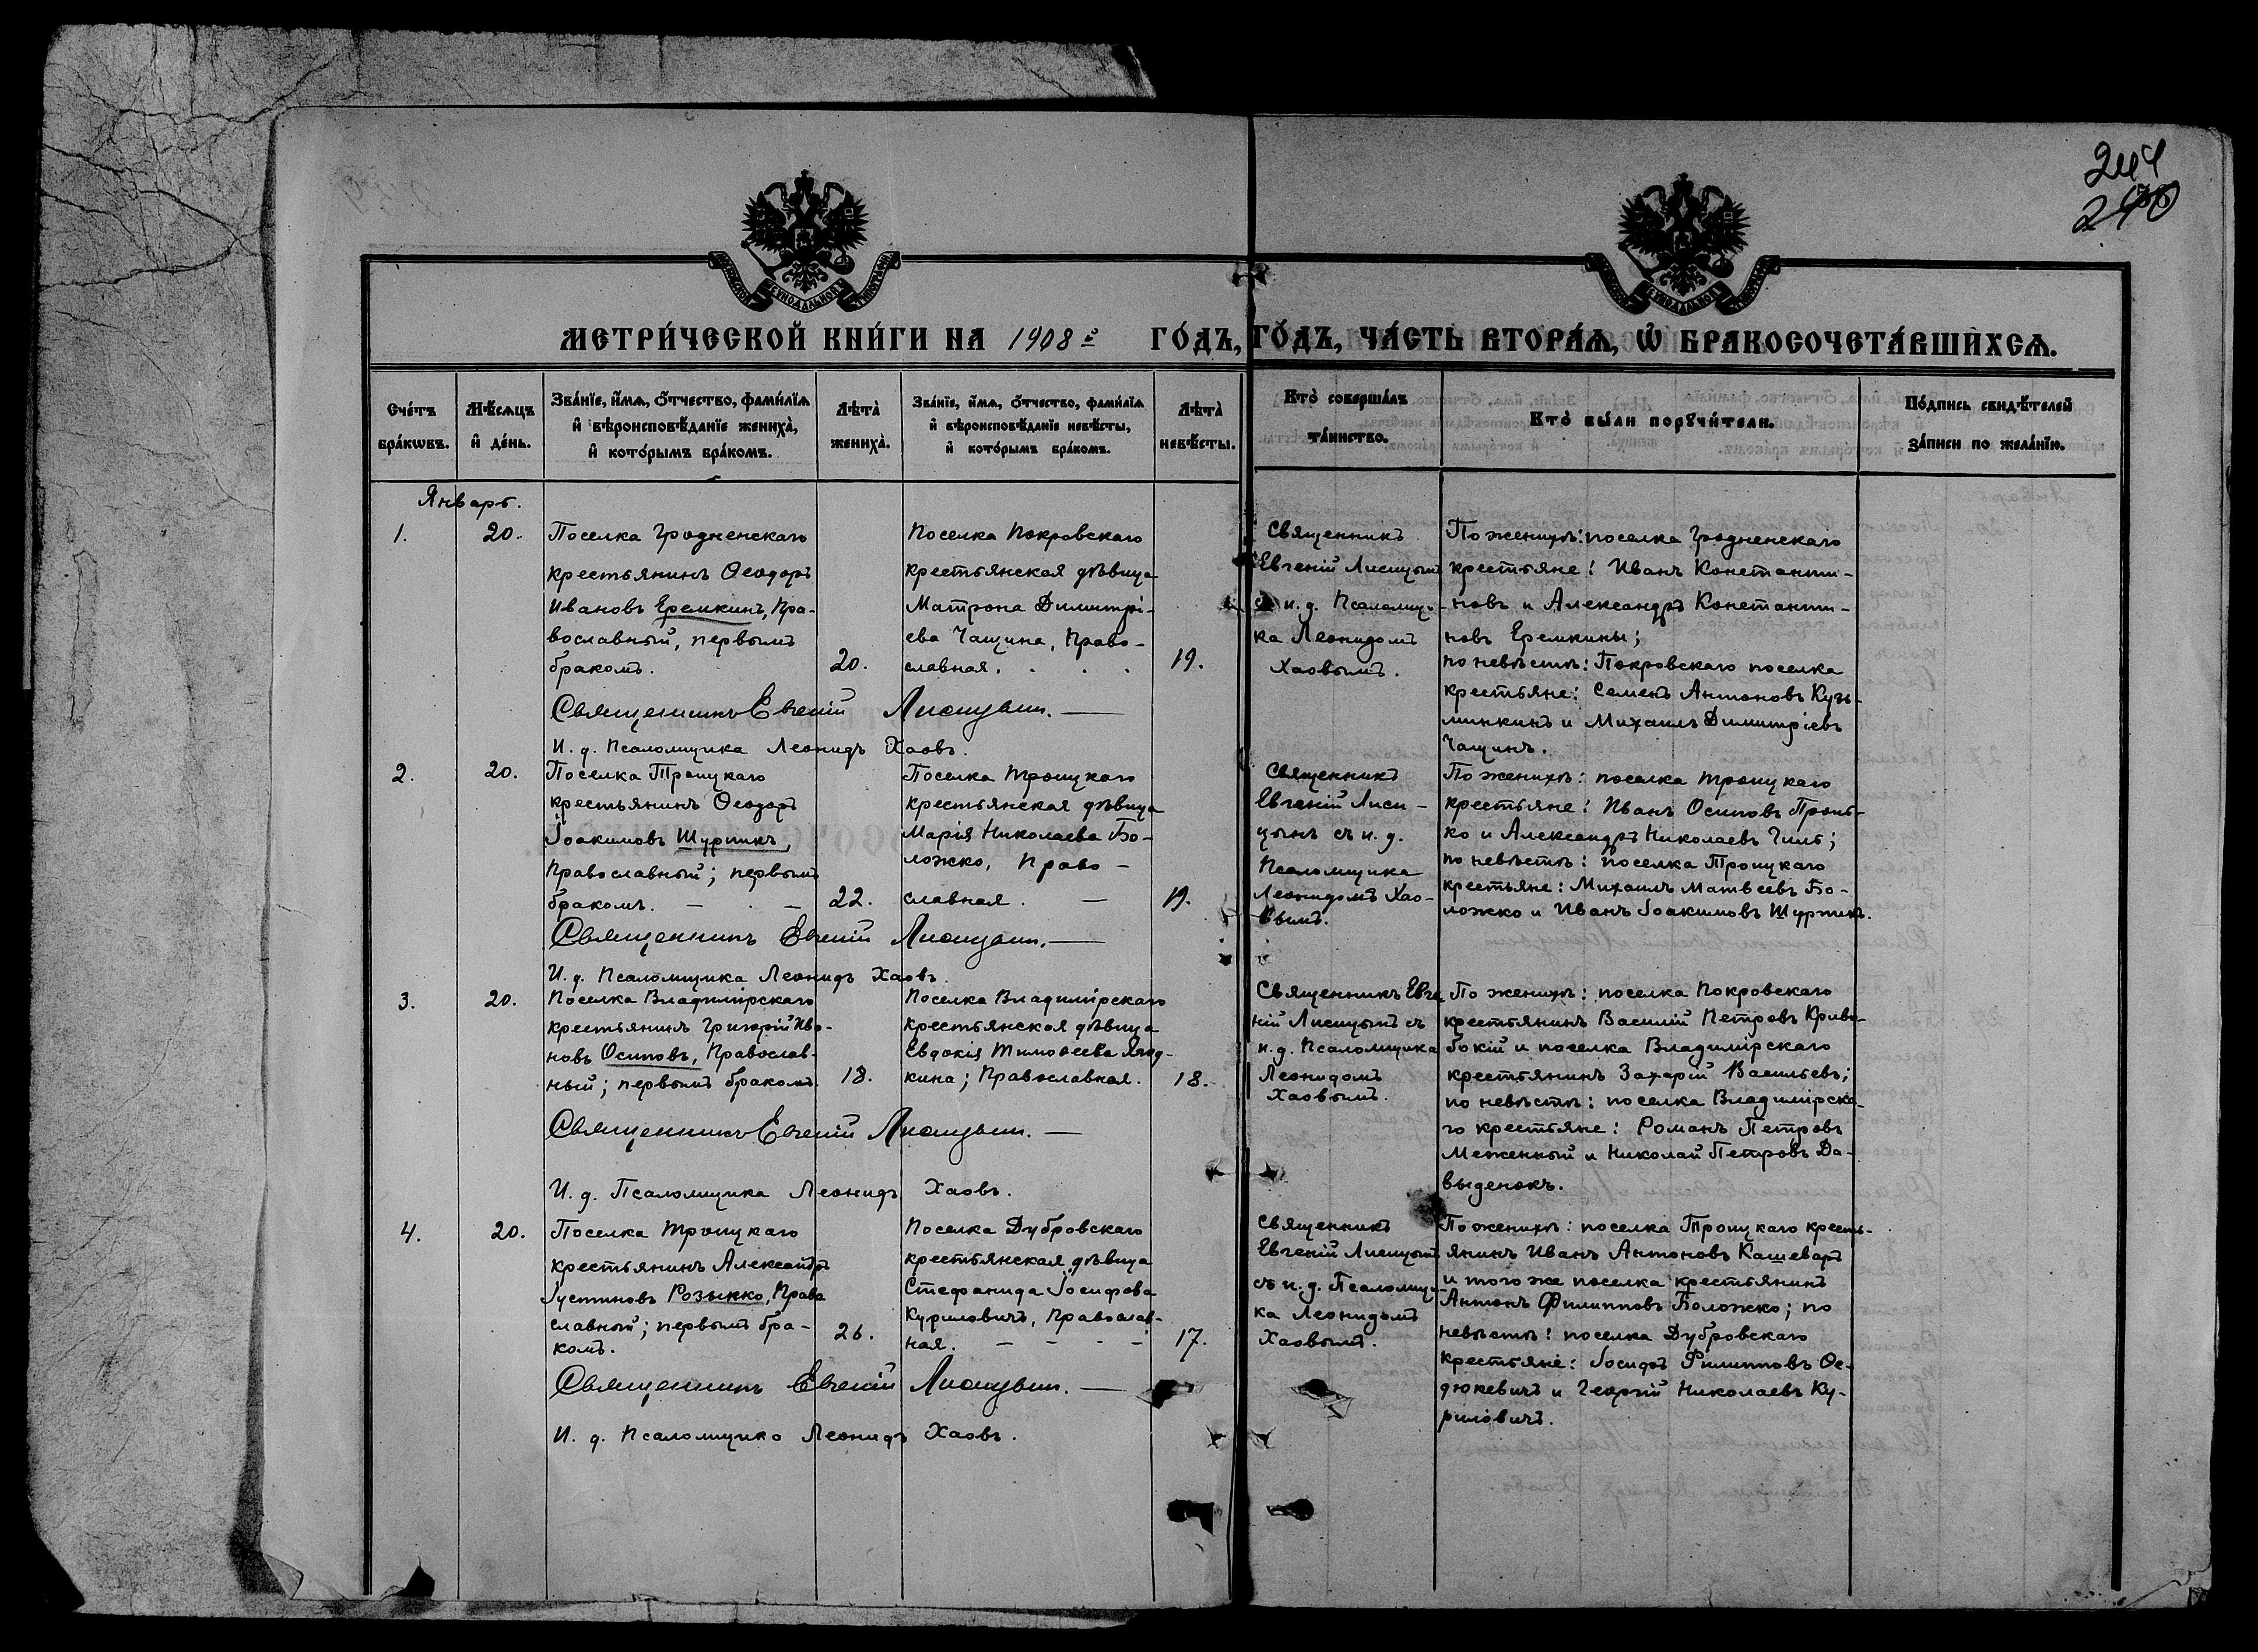 244
МЕТРИ́ЧЕСКОЙ КНИ́ГИ НА 1908й ГО́ДЪ,
ГО́ДЪ, ЧА́СТЬ ВТОРА́Ѧ, Ѽ БРАКОСОЧЕТА́ВШИХСѦ.
Сче́тъ бра́кѡвъ.
Мѣ́сѧцъ и҆ де́нь.
Зва́нїе, и҆́мѧ, ѻ҆́тчество, фами́лїѧ
и҆ вѣроисповѣ́данїе жениха̀,
и҆ кото́рымъ бра́комъ.
Лѣ́та̀ жениха̀.
Зва́нїе, и҆́мѧ, ѻ҆́тчество, фами́лїѧ
и҆ вѣроисповѣ́данїе невѣ́сты,
и҆ кото́рымъ бра́комъ.
Лѣ́та̀ невѣ́сты.
Кто̀ соверша́лъ
та́инство.
Кто̀ бы́ли порꙋчи́тели.
По́дпись свидѣ́телей
за́писи по жела́нїю.
Январь.
1.
20.
Поселка Гродненскаго
крестьянинъ Ѳеодоръ
Ивановъ Еремкинъ, Пра-
вославный, первымъ
бракомъ.
20.
Поселка Покровскаго
крестьянская дѣвица
Матрона Димитрі-
ева Чащина, Право-
славная.
19.
Священникъ
Евгеній Лисицынъ
съ и. д. Псаломщи-
ка Леонидомъ
Хаовымъ.
По женихѣ: поселка Гродненскаго
крестьяне: Иванъ Константи-
новъ и Александръ Константи-
новъ Еремкины;
по невѣстѣ: Покровскаго поселка
крестьяне: Семенъ Антоновъ Кузь-
минкинъ и Михаилъ Димитріевъ
Чащинъ.
Священникъ Евгеній Лисицын.
И. д. Псаломщика Леонидъ Хаовъ.
2.
20.
Поселка Троицкаго
крестьянинъ Ѳеодоръ
Іоакимовъ Шурпикъ,
Православный; первымъ
бракомъ.
22.
Поселка Троицкаго
крестьянская дѣвица
Марія Николаева Бо-
ложко, Право-
славная.
19.
Священникъ
Евгеній Лиси-
цынъ съ и. д.
Псаломщика
Леонидомъ Хао-
вымъ.
По женихѣ: поселка Троицкаго
крестьяне: Иванъ Осиповъ
ко и Александръ Николаевъ
по невѣстѣ: поселка Троицкаго
крестьяне: Михаилъ Матвеевъ Бо-
ложко и Иванъ Іоакимовъ Шурпикъ.
Священникъ Евгеній Лисицын.
И. д. Псаломщика Леонидъ Хаовъ.
3.
20.
Поселка Владимірскаго
крестьянинъ Григорій Ива-
новъ Осиповъ, Православ-
ный; первымъ бракомъ.
18.
Поселка Владимірскаго
крестьянская дѣвица
Евдокія Тимоѳеева Ягод-
кина; Православная.
18.
Священникъ Евге
ній Лисицынъ съ
и. д. Псаломщика
Леонидомъ
Хаовымъ.
По женихѣ: поселка Покровскаго
крестьянинъ Василій Петровъ Криво-
бокій и поселка Владимірскаго
крестьянинъ Захарій Васильевъ;
по невѣстѣ: поселка Владимірска-
го крестьяне: Романъ Петровъ
Меженный и Николай Петровъ Да-
выденокъ.
Священникъ Евгеній Лисицын.
И. д. Псаломщика Леонидъ Хаовъ.
4.
20.
Поселка Троицкаго
крестьянинъ Александръ
Іустиновъ Розыкко, Право
славный; первымъ бра-
комъ.
26.
Поселка Дубровскаго
крестьянская дѣвица
Стефанида Іосифова
Куриловичъ, Православ-
ная.
17.
Священникъ
Евгеній Лисицынъ
съ и. д. Псаломщи-
ка Леонидомъ
Хаовымъ.
По женихѣ: поселка Троицкаго кресть-
янинъ Иванъ Антоновъ Кашеваръ
и того же поселка крестьянинъ
Антонъ Филипповъ Боложко; по
невѣстѣ: поселка Дубровскаго
крестьяне: Іосифъ Филипповъ Ѳе-
дюкевичъ и Георгій Николаевъ Ку-
риловичъ.
Священникъ Евгеній Лисицын.
И. д. Псаломщика Леонидъ Хаовъ.